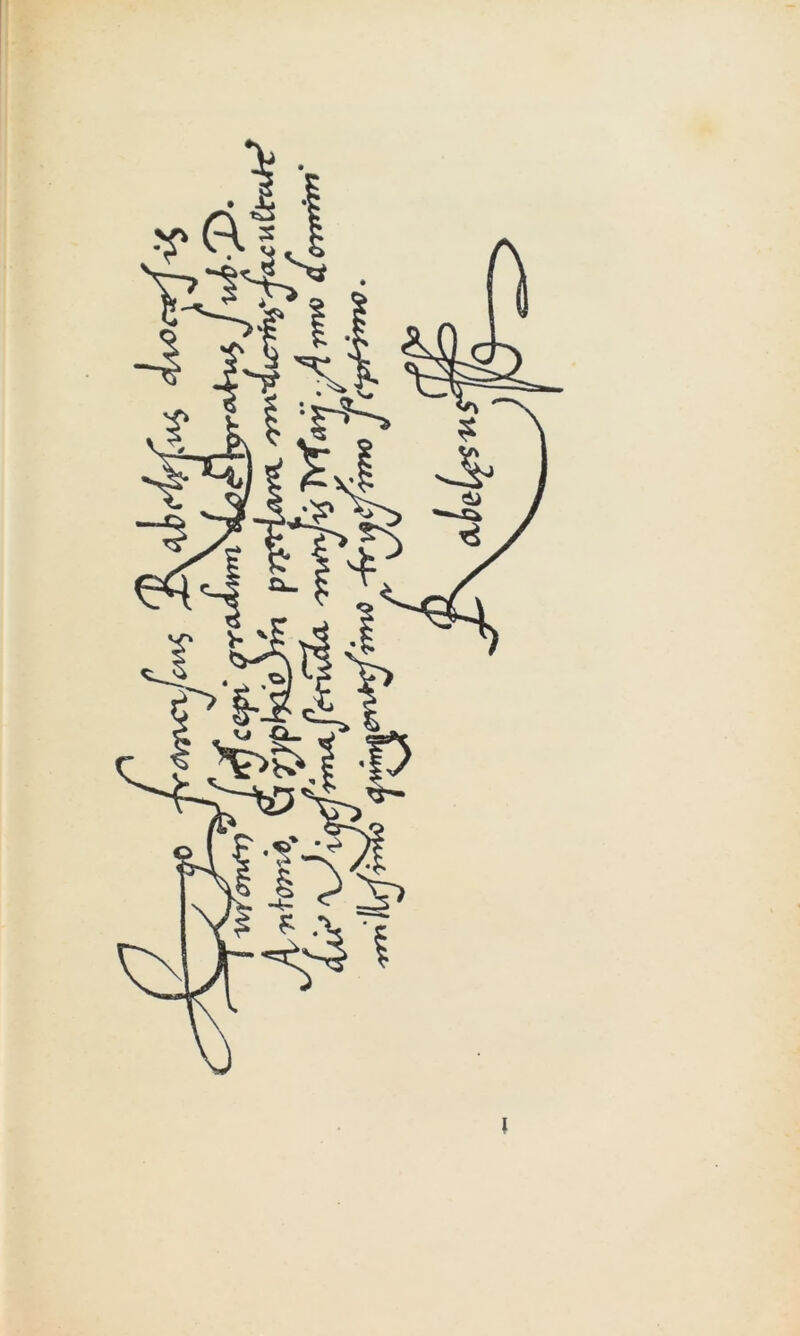 Ego franciscus Rabelesus diocesis
Turonen suscepi gradum doctoratus sub D.
Antonio Gryphio in preclara medicine facultate
die Vigesima secunda mensis Maij. Anno domini
millesimo quingentesimo trigesimo septimo.
Rabelęsus
I